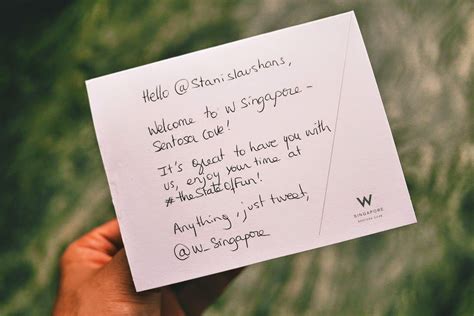 Hello @Stanislavshans,
Welcome to W Singapore -
Sentosa Cove!
It's great to have you with
us, enjoy your time at
#theStateOfFun!
Anything, just tweet,
@W_Singapore
W
SINGAPORE
SENTOSA COVE